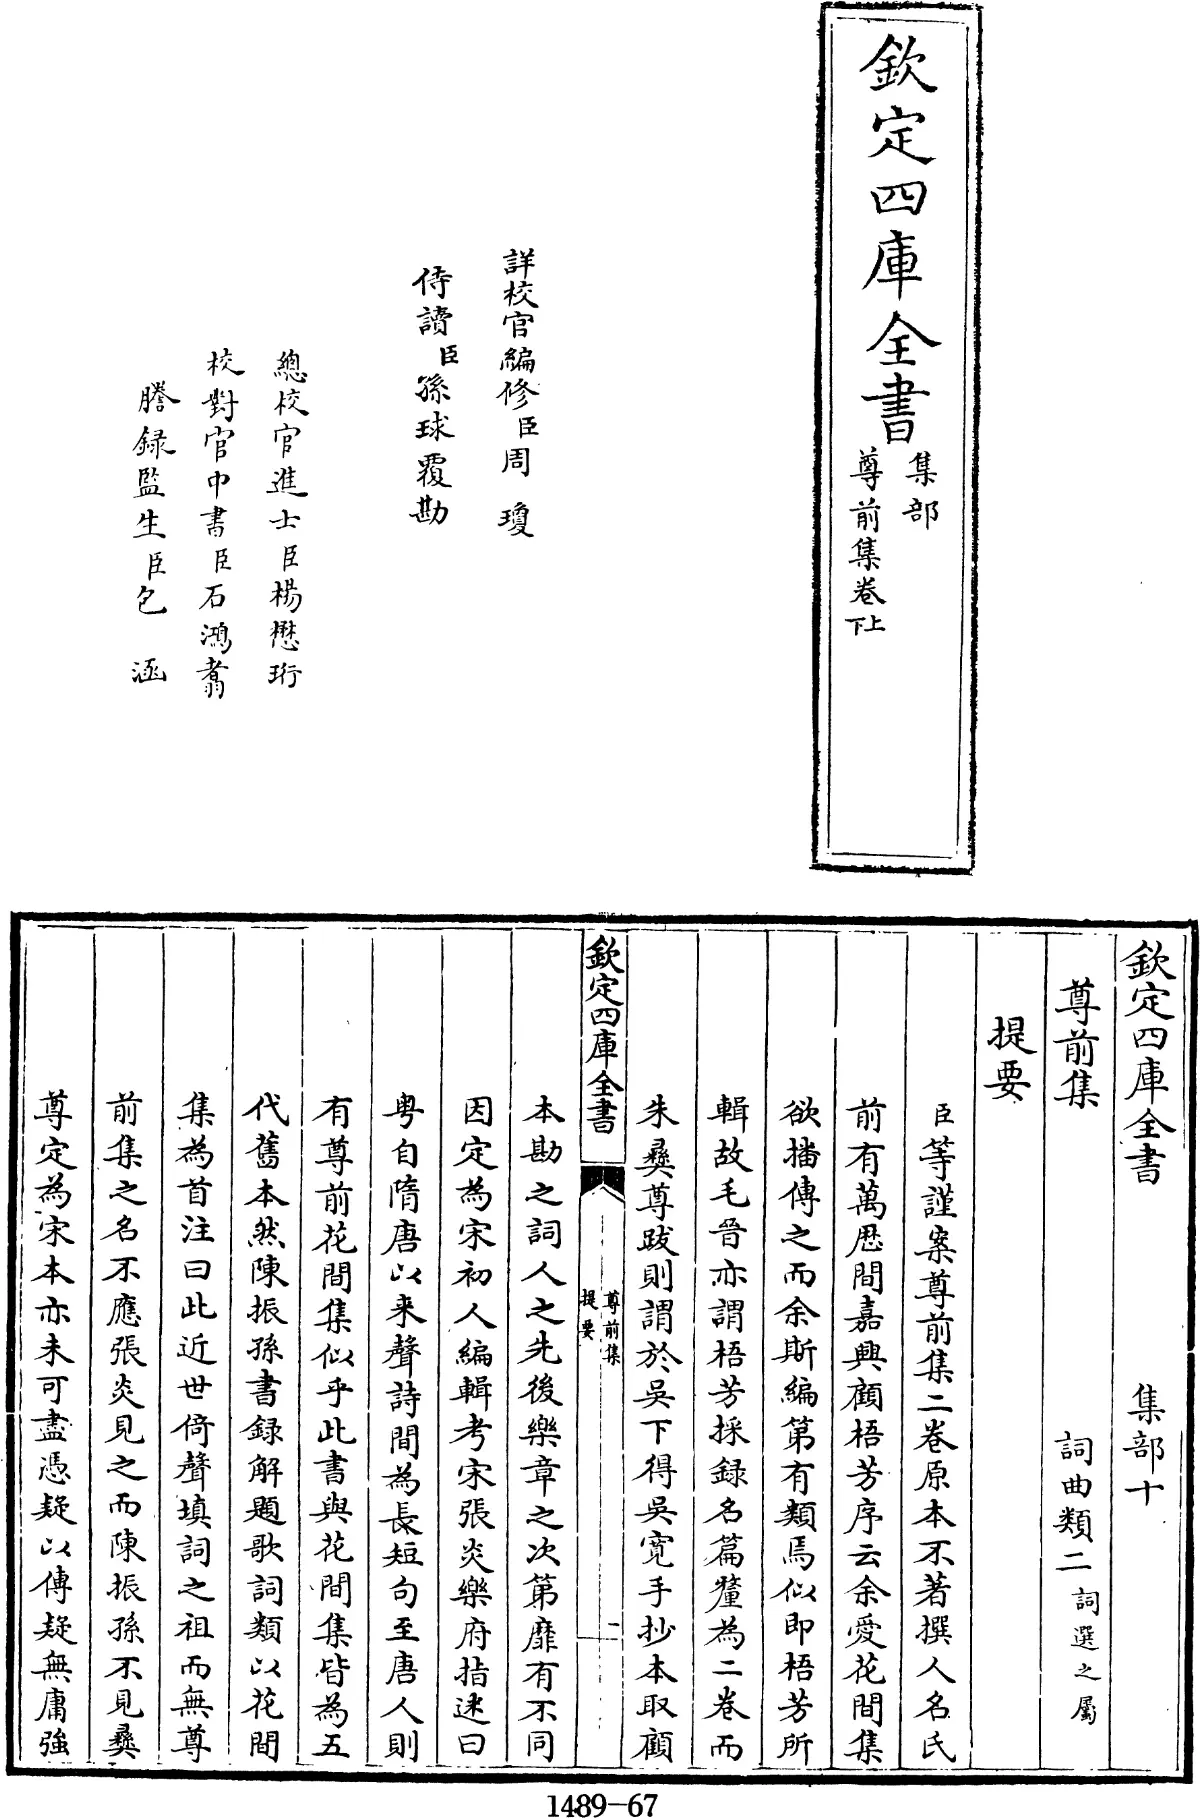 欽定四庫全書
集部
尊前集卷上下
詳校官編修臣周瓊
侍讀臣孫球覆勘
總校官進士臣楊懋珩
校對官中書臣石鴻翥
謄録監生臣包涵
欽定四庫全書
集部十
尊前集
詞曲類二詞選之屬
提要
臣等謹案尊前集二卷原本不著撰人名氏
前有萬厯間嘉興顧梧芳序云余愛花間集
欲播傳之而余斯編第有類焉似即梧芳所
輯故毛晉亦謂梧芳採録名篇釐為二卷而
朱彞尊跋則謂於吳下得吳寛手抄本取顧
欽定四庫全書
尊前集
提要
二
本勘之詞人之先後樂章之次第靡有不同
因定為宋初人編輯考宋張炎樂府指迷曰
粤自隋唐以来聲詩間為長短句至唐人則
有尊前花間集似乎此書與花間集皆為五
代舊本然陳振孫書録解題歌詞類以花間
集為首注曰此近世倚聲填詞之祖而無尊
前集之名不應張炎見之而陳振孫不見彞
尊定為宋本亦未可盡憑疑以傳疑無庸強
1489-67